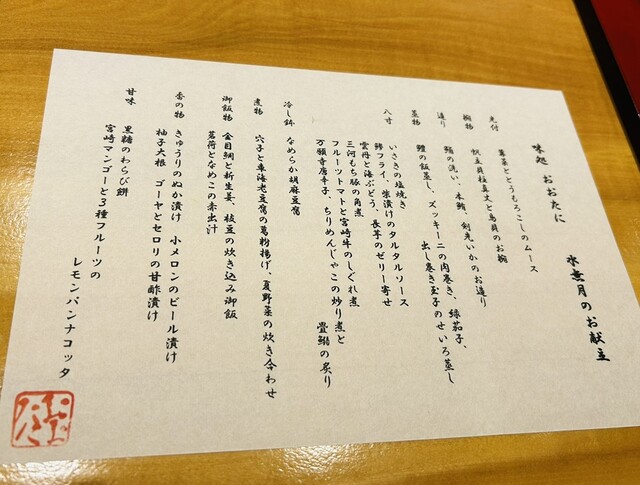 味処 おおたに
水無月のお献立
先付
蓴菜ととうもろこしのムース
椀物
帆立貝柱真丈と鳥貝のお椀
造り
鮎の洗い、本鮪、剣先いかのお造り
蒸物
鰻の飯蒸し、ズッキーニの肉巻き、緑茄子、
出し巻き玉子のせいろ蒸し
八寸
いさきの塩焼き
鯵フライ、柴漬けのタルタルソース
雲丹と海ぶどう、長芋のゼリー寄せ
三河もち豚の角煮
フルーツトマトと宮崎牛のしぐれ煮
万願寺唐辛子、ちりめんじゃこの炒り煮と
畳鰯の炙り
冷し鉢
なめらか胡麻豆腐
煮物
穴子と車海老豆腐の葛粉揚げ、夏野菜の炊き合わせ
御飯物
金目鯛と新生姜、枝豆の炊き込み御飯
茗荷となめこの赤出汁
香の物
きゅうりのぬか漬け 小メロンのビール漬け
柚子大根 ゴーヤとセロリの甘酢漬け
甘味
黒糖のわらび餅
宮崎マンゴーと3種フルーツの
レモンパンナコッタ